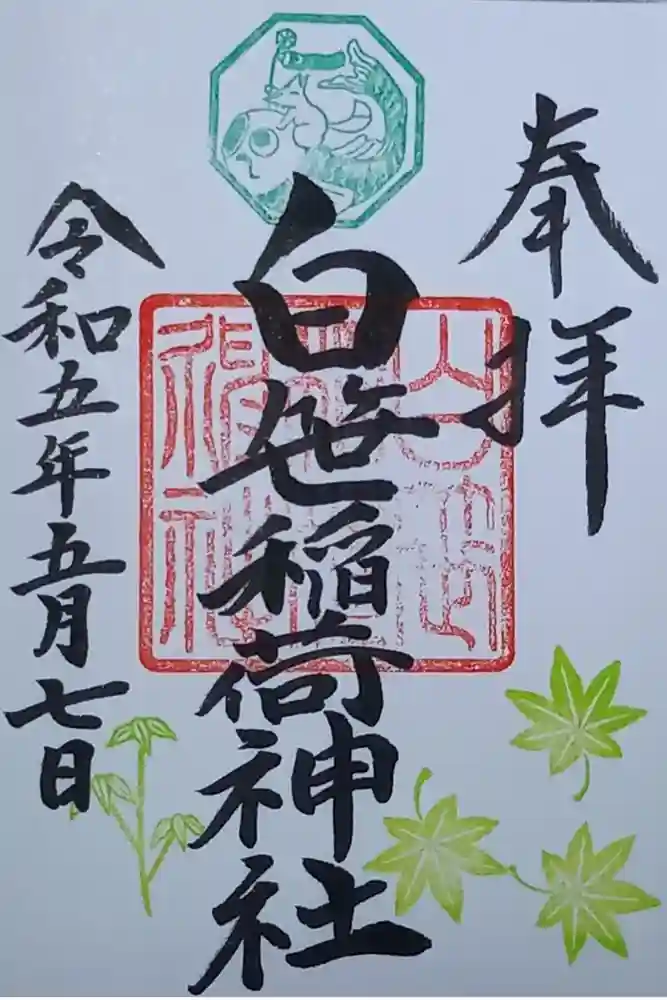 奉拝
白笹稲荷神社
令和五年五月七日